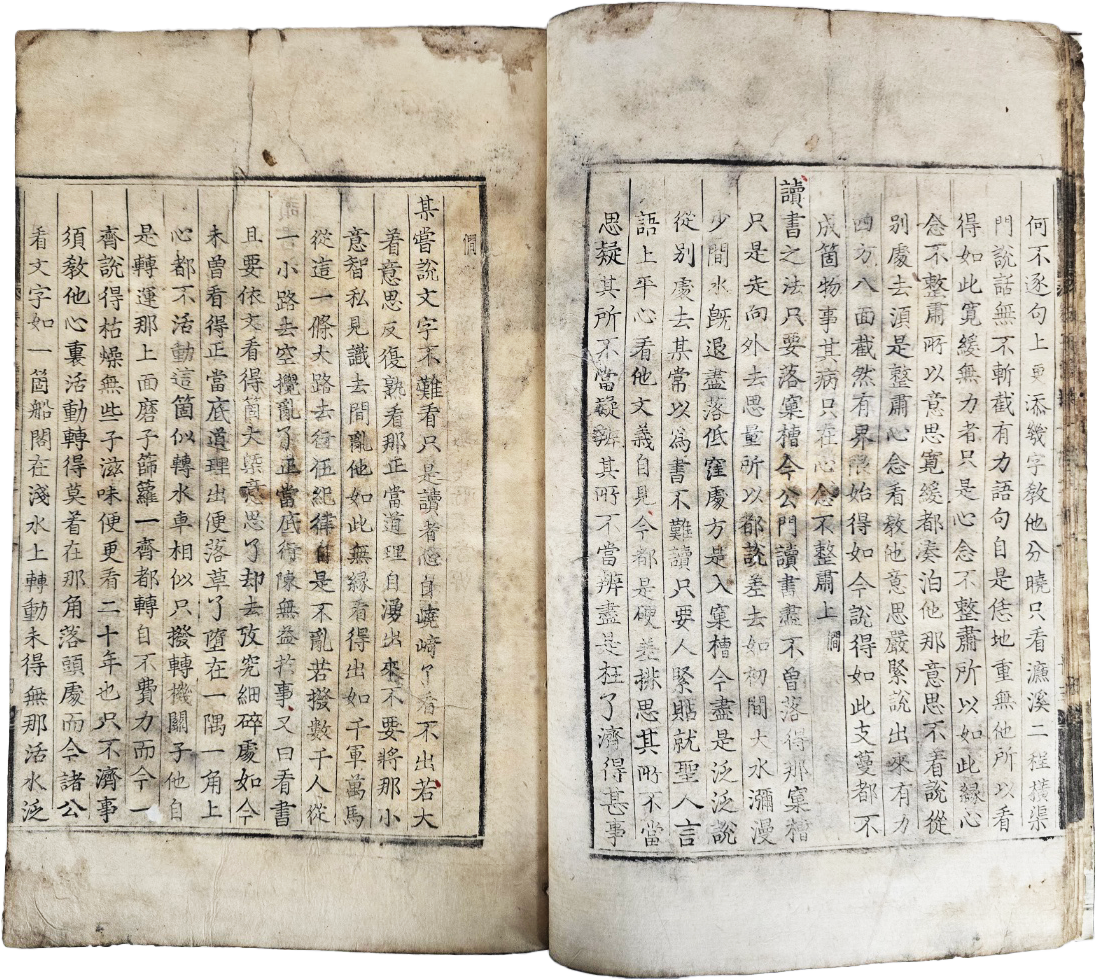 何不逐句上更添幾字敎他分曉只看濂溪二程橫渠
門說話無不斬截有力語句自是恁地重無他所以看
得如此寬緩無力者只是心念不整肅所以如此緣心
念不整肅所以意思寬緩都湊泊他那意思不着說從
別處去湏是整肅心念看敎他意思嚴緊說出來有力
四方八面截然有界限始得如今說得如此支蔓都不
成箇物事其病只在心念不整肅上 僩
讀書之法只要落窠槽今公門讀書盡不曾落得那窠槽
只是走向外去思量所以都說差去如初間大水瀰漫
少間水旣退盡落低窪處方是入窠槽今盡是泛泛說
從別處去某常以爲書不難讀只要人緊貼就聖人言
語上平心看他文義自見今都是硬差排思其所不當
思疑其所不當疑辨其所不當辨盡是枉了濟得甚事
僩
某嘗說文字不難看只是讀者心自嶢﨑了看不出若大
着意思反復熟看那正當道理自湧出來不要將那小
意智私見識去間亂他如此無緣看得出如千軍萬馬
從這一條大路去行伍紀律自是不亂若撥數千人從
一小路去空攪亂了正當底行陳無益於事又曰看書
且要依文看得箇大槩意思了却去攷究細碎處如今
未曾看得正當底道理出便落草了墮在一隅一角上
心都不活動這箇似轉水車相似只撥轉機關子他自
是轉運那上面磨子篩籮一齊都轉自不費力而今一
齊說得枯燥無些子滋味便更看二十年也只不濟事
須敎他心裏活動轉得莫着在那角落頭處而今諸公
看文字如一箇船閣在淺水上轉動未得無那活水泛